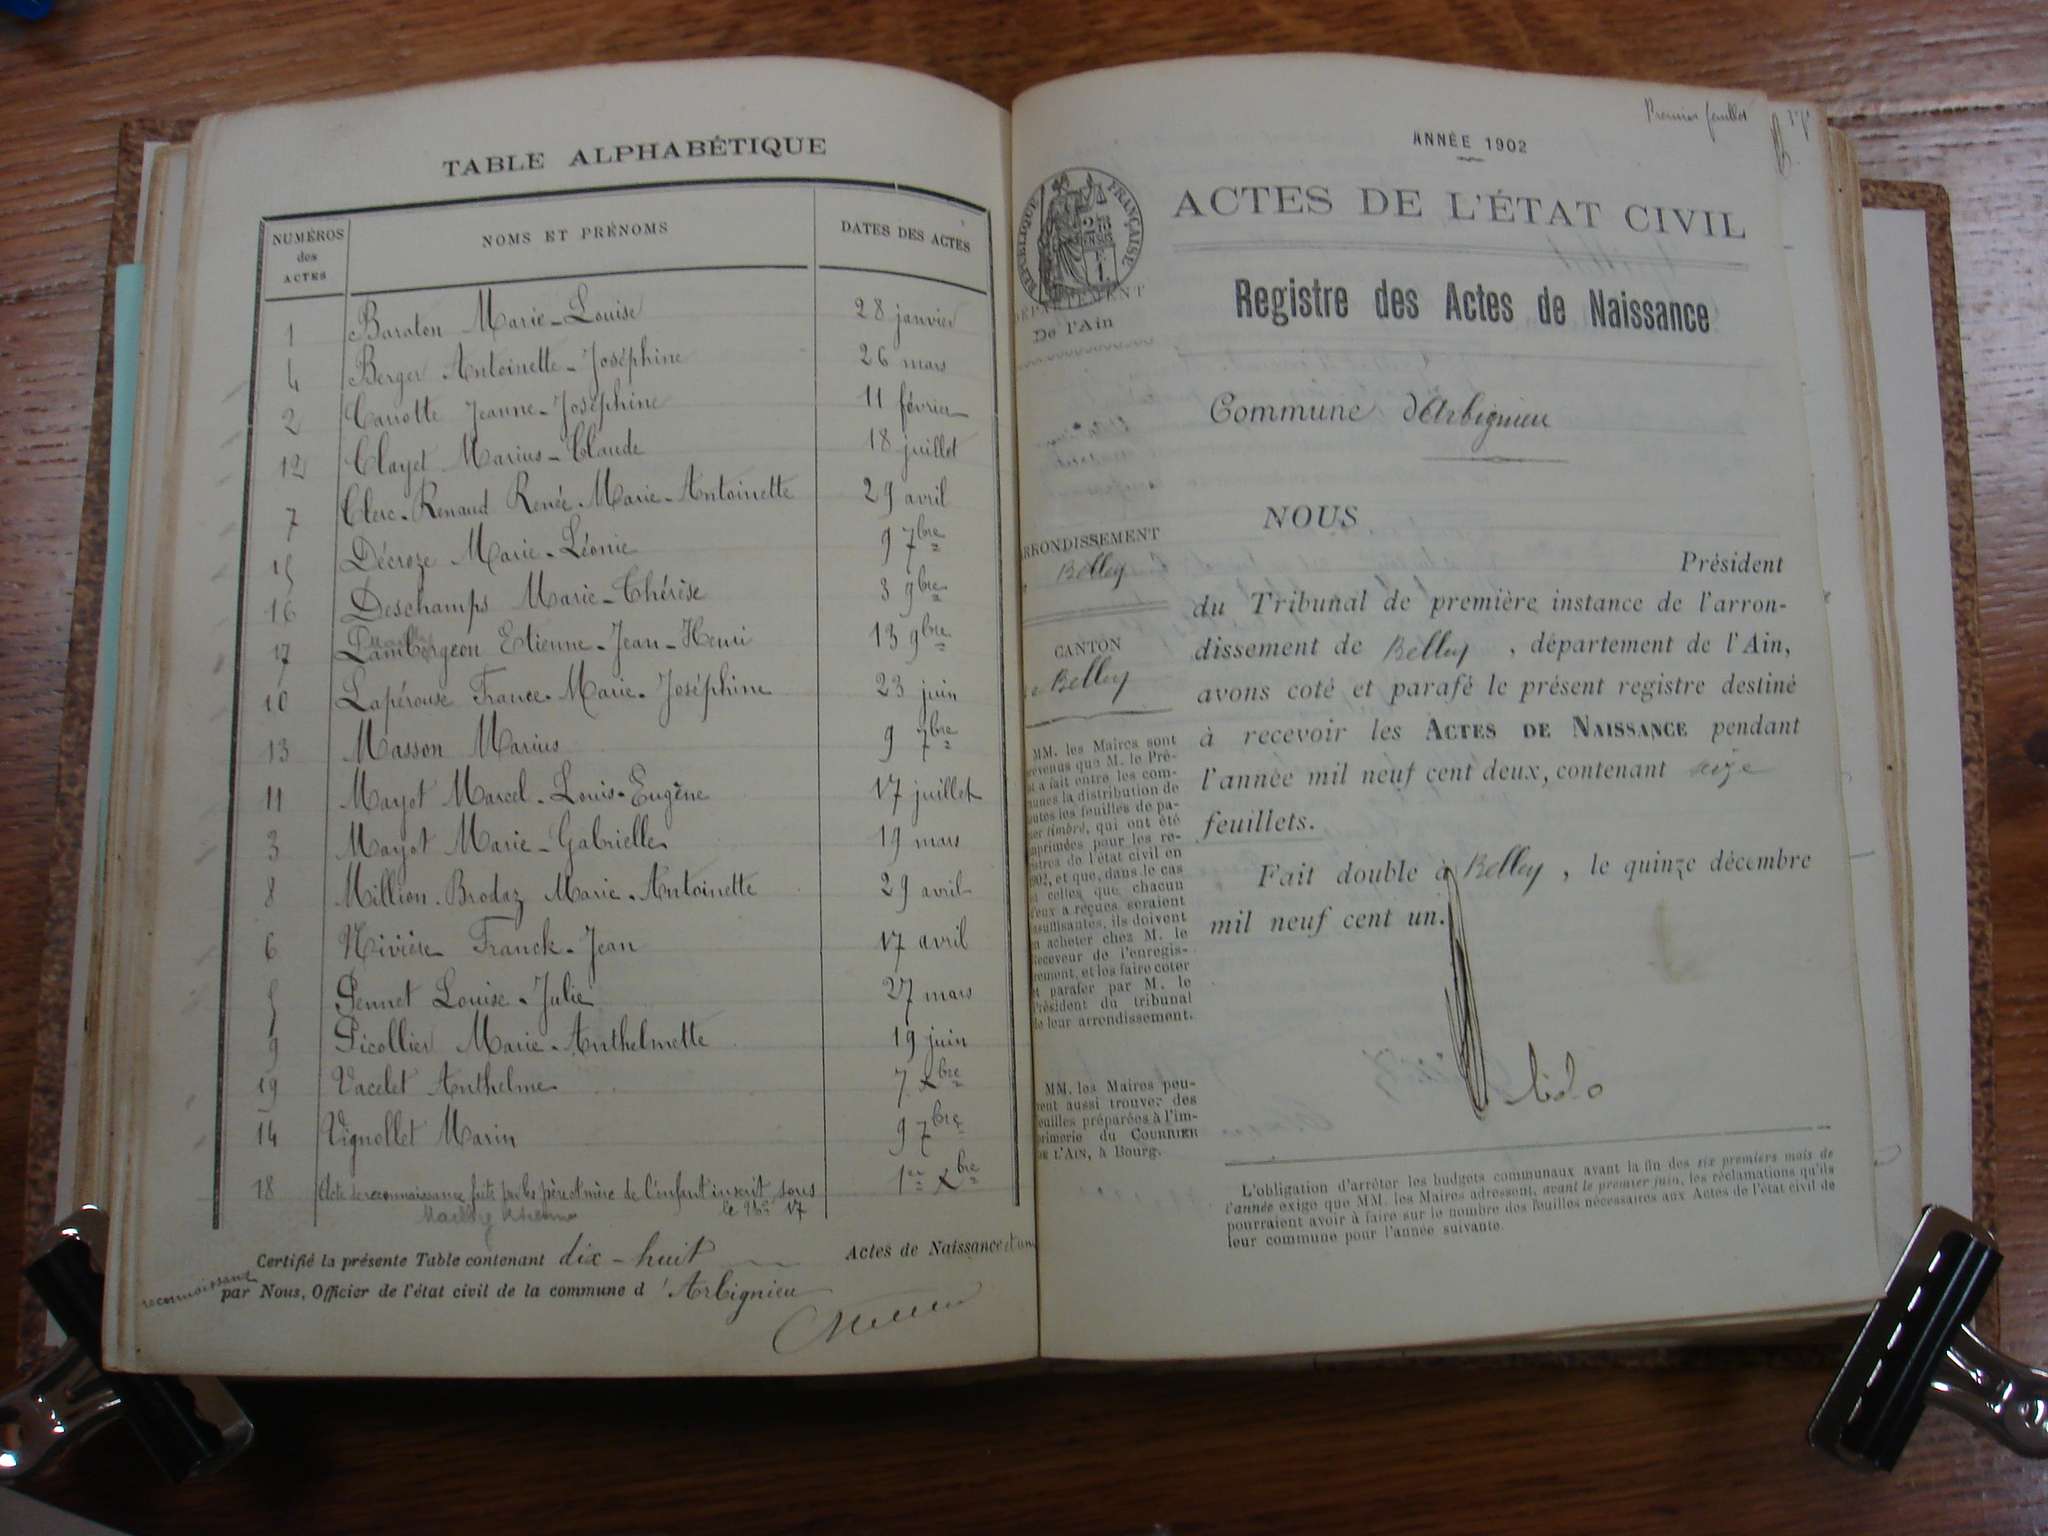 TABLE ALPHABÉTIQUE
NUMÉROS des ACTES
NOMS ET PRÉNOMS
DATES DES ACTES
1 Baraton Marie-Louise 28 janvier
4 Berger Antoinette-Joséphine 26 mars
2 Carrotte Jeanne-Joséphine 11 février
12 Clayet Marius-Claude 18 juillet
7 Clerc-Renaud Renée-Marie-Antoinette 29 avril
15 Décroze Marie-Léonie 9 7bre
16 Deschamps Marie-Thérèse 3 9bre
17 Etienne-Jean-Henri 13 9bre
10 Lapérouse France-Marie-Joséphine 23 juin
13 Masson Marius 9 7bre
11 Mayot Marcel-Louis-Eugène 17 juillet
3 Mayot Marie-Gabrielle 19 mars
8 Million-Brodaz Marie-Antoinette 29 avril
6 Nivière Franck-Jean 17 avril
5 Pennet Louise-Julie 27 mars
9 Picollier Marie-Anthelmette 19 juin
19 Vacelet Anthelme 7 Xbre
14 Vignollet Marin 9 7bre
18 Acte de reconnaissance faite par les père et mère de l'enfant inscrit sous 1er Xbre
le 17
Certifié la présente Table contenant dix-huit Actes de Naissance et une
reconnaissance par Nous, Officier de l'état civil de la commune d'Arbignieu
Premier feuillet
ANNÉE 1902
ACTES DE L'ÉTAT CIVIL
RÉPUBLIQUE FRANÇAISE
DÉPARTEMENT
De l'Ain
Registre des Actes de Naissance
Commune d'Arbignieu
RRONDISSEMENT
Belley
CANTON
Belley
NOUS
Président
du Tribunal de première instance de l'arron-
dissement de Belley, département de l'Ain,
avons coté et parafé le présent registre destiné
à recevoir les ACTES DE NAISSANCE pendant
l'année mil neuf cent deux, contenant seize
feuillets.
Fait double à Belley, le quinze décembre
mil neuf cent un.
MM. les Maires sont
revenus que M. le Pré-
et a fait entre les com-
munes la distribution de
outes les feuilles de pa-
ier timbré, qui ont été
mprimées pour les re-
istres de l'état civil en
902, et que, dans le cas
celles que chacun
d'eux a reçues seraient
nsuffisantes, ils doivent
n acheter chez M. le
Receveur de l'enregis-
rement, et les faire coter
et parafer par M. le
Président du tribunal
de leur arrondissement.
MM. les Maires peu-
vent aussi trouver des
feuilles préparées à l'im-
primerie du COURRIER
DE L'AIN, à Bourg.
L'obligation d'arrêter les budgets communaux avant la fin des six premiers mois de
l'année exige que MM. les Maires adressent, avant le premier juin, les réclamations qu'ils
pourraient avoir à faire sur le nombre des feuilles nécessaires aux Actes de l'état civil de
leur commune pour l'année suivante.